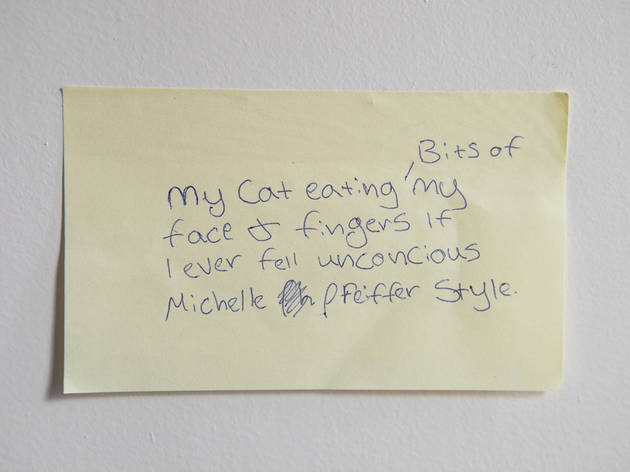 Bits of
My Cat eating my
face & fingers If
I ever fell unconcious
Michelle Pfeiffer Style.